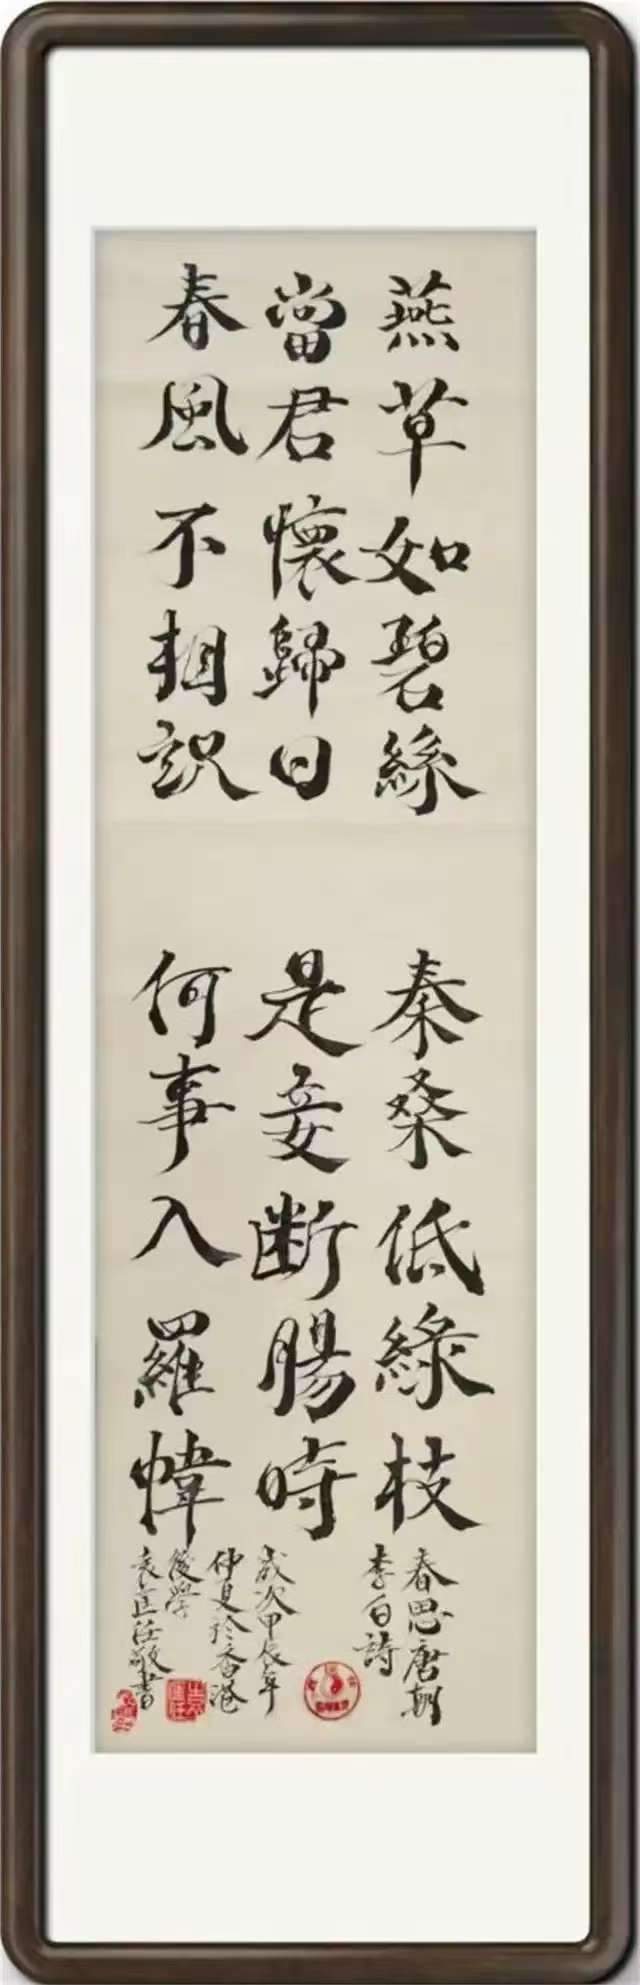 燕草如碧絲
秦桑低綠枝
當君懷歸日
是妾断腸時
春風不相識
何事入羅幃
春思唐朝
李白詩
歲次甲辰年
仲夏於香港
後學
敬書